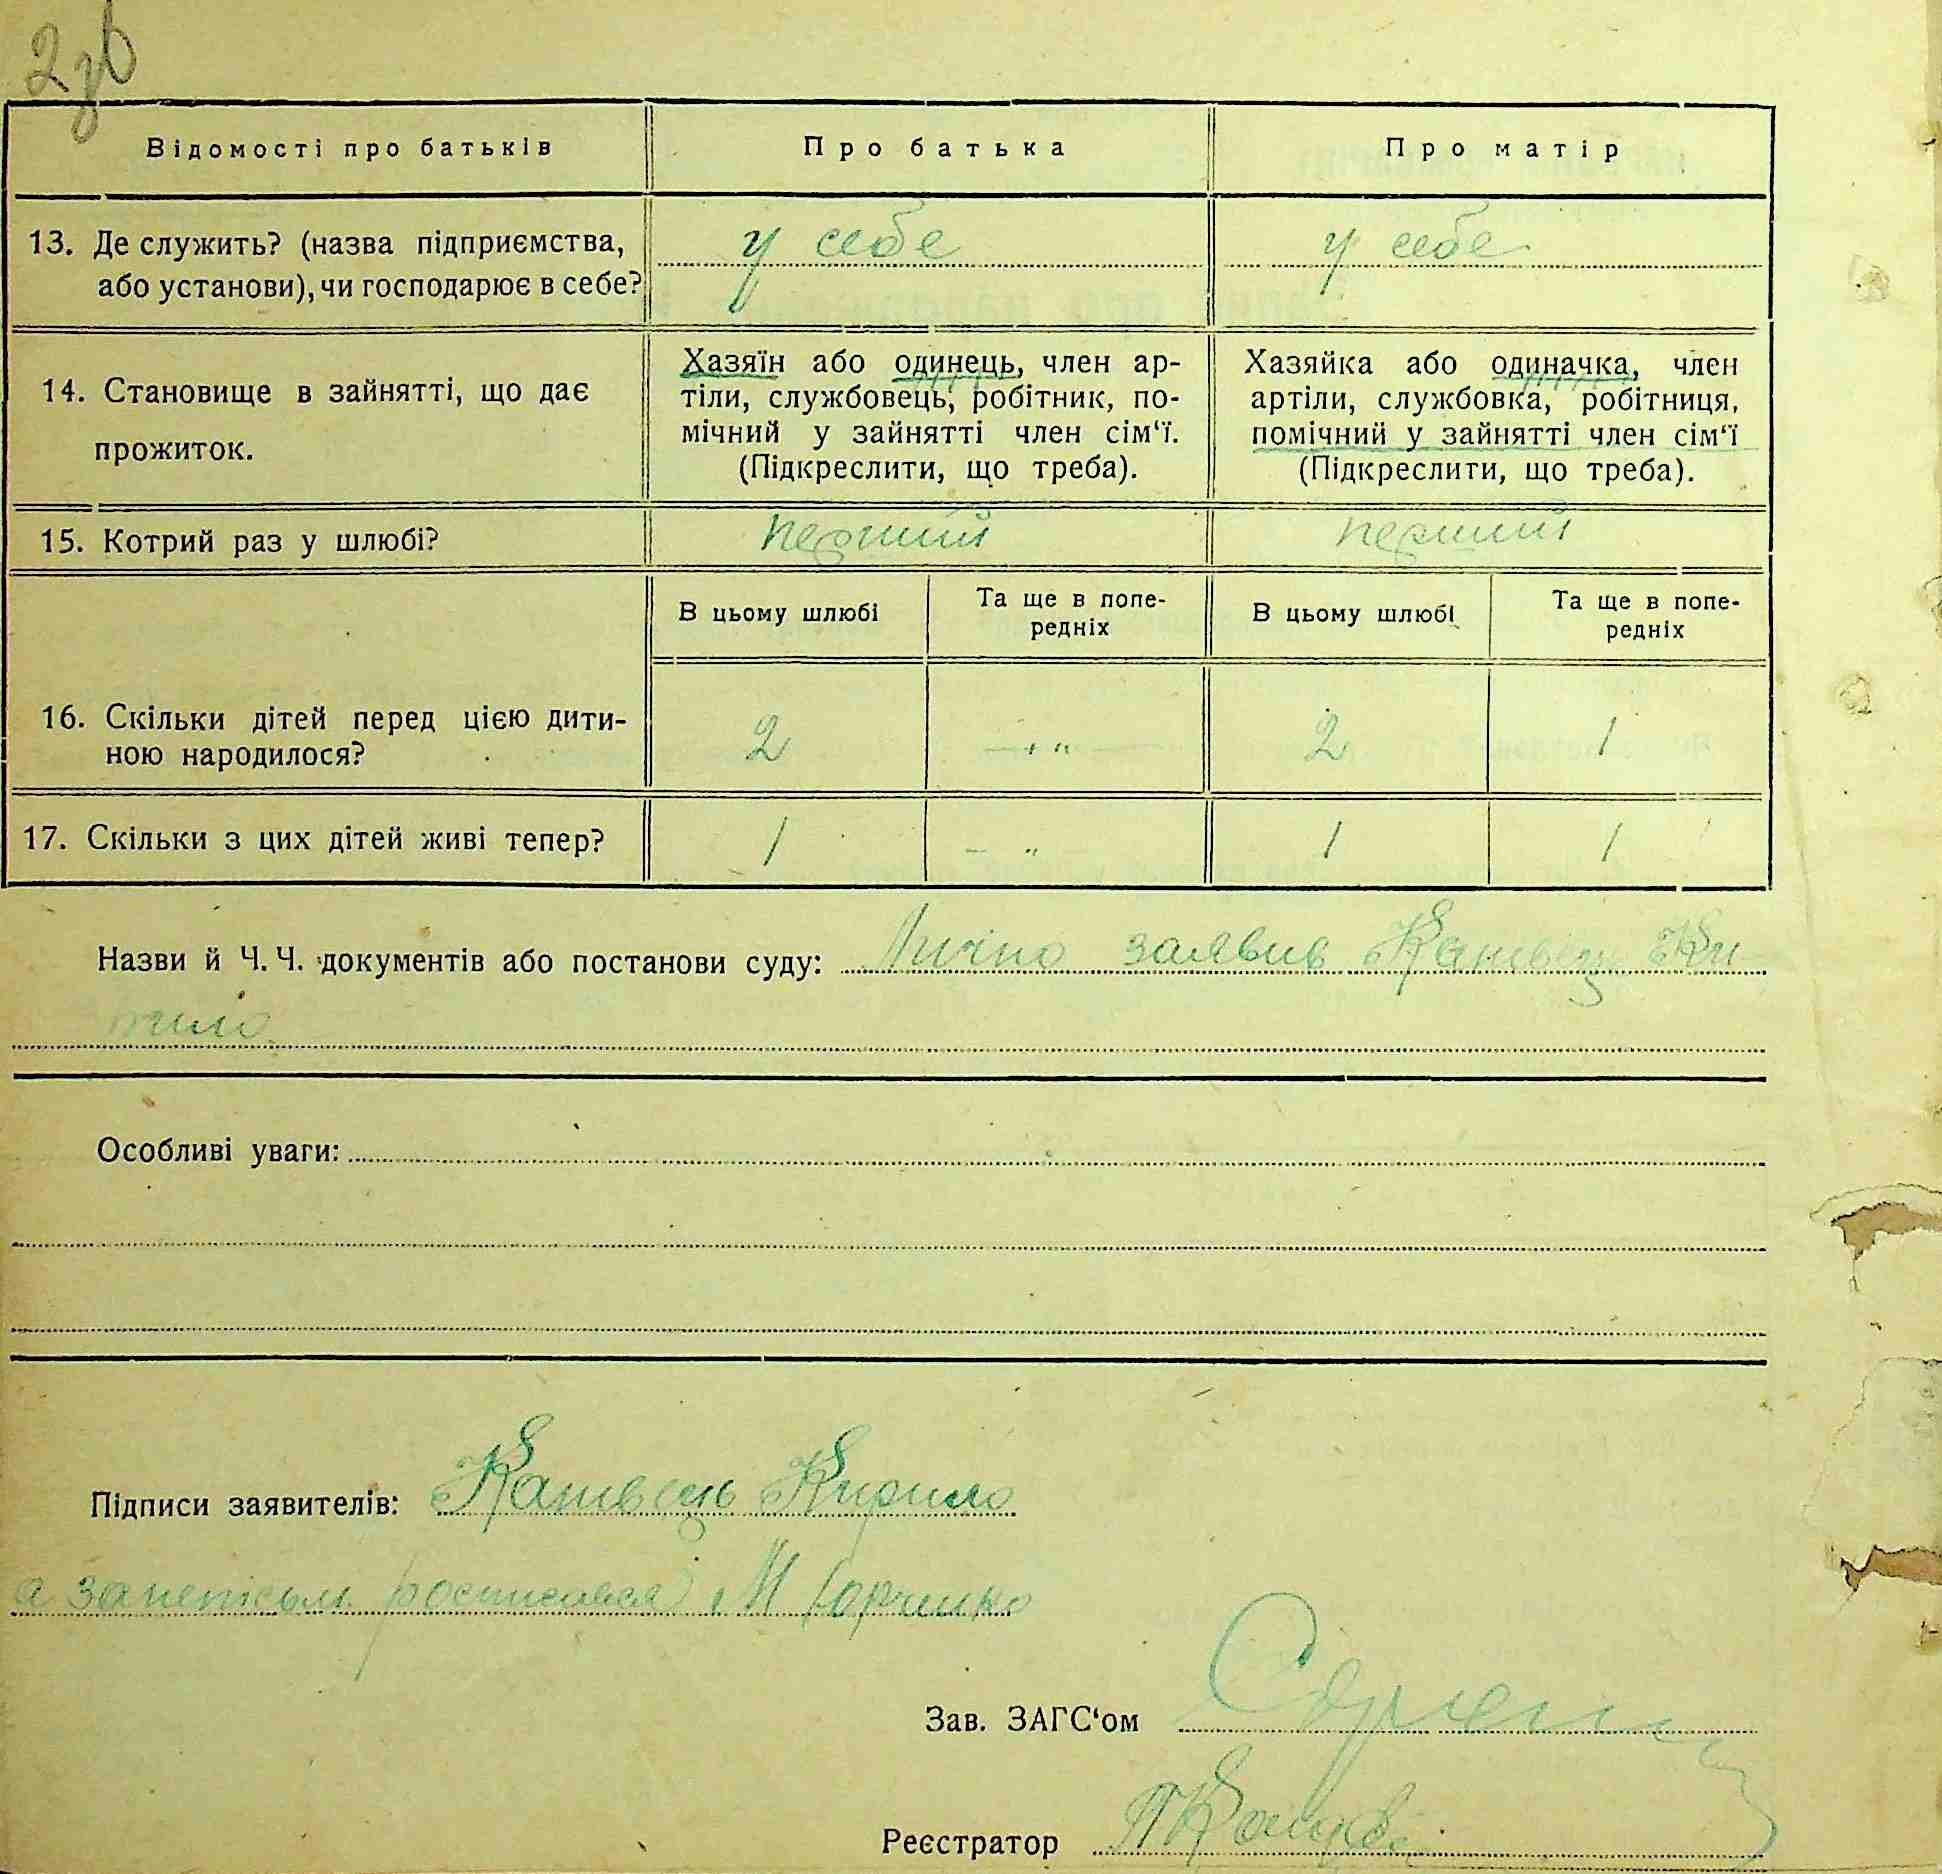 2зв
Відомості про батьків
Про батька
Про матір
13. Де служить? (назва підприємства,
або установи), чи господарює в себе?
у себе
у себе
14. Становище в зайнятті, що дає
прожиток.
Хазяїн або одинець, член ар-
тіли, службовець, робітник, по-
мічний у зайнятті член сім‘ї.
(Підкреслити, що треба).
Хазяйка або одиначка, член
артіли, службовка, робітниця,
помічний у зайнятті член сім‘ї
(Підкреслити, що треба).
15. Котрий раз у шлюбі?
перший
перший
В цьому шлюбі
Та ще в попе-
редніх
В цьому шлюбі
Та ще в попе-
редніх
16. Скільки дітей перед цією дити-
ною народилося?
2
— „ —
2
1
17. Скільки з цих дітей живі тепер?
1
— „
1
1
Назви й Ч. Ч. документів або постанови суду: заявив
Особливі уваги:
Підписи заявителів: Кирило
а
Зав. ЗАГС‘ом
Реєстратор